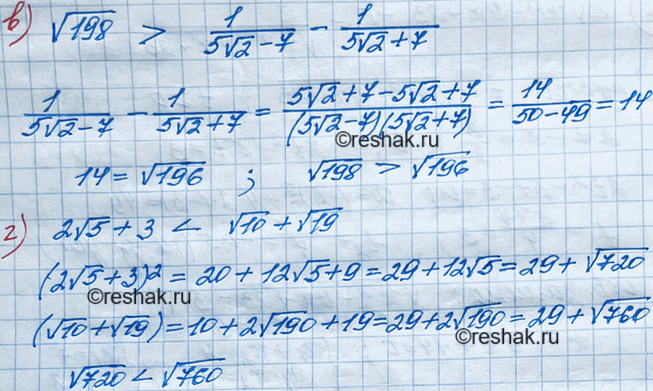 в) √198 > 1/(5√2-7) - 1/(5√2+7)
1/(5√2-7) - 1/(5√2+7) = (5√2+7-5√2+7)/((5√2-7)(5√2+7)) = 14/(50-49) = 14
©reshak.ru
14 = √196 ; √198 > √196
©reshak.ru
г) 2√5 + 3 < √10 + √19
(2√5+3)² = 20 + 12√5 + 9 = 29 + 12√5 = 29 + √720
©reshak.ru
(√10+√19) = 10 + 2√190 + 19 = 29 + 2√190 = 29 + √760
√720 < √760
©reshak.ru